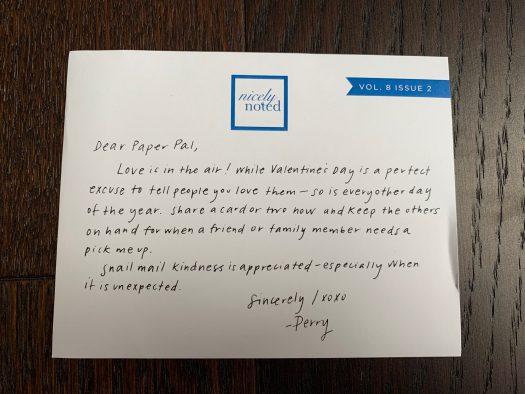 nicely
noted
VOL. 8 ISSUE 2
Dear Paper Pal,
Love is in the air! While Valentine's Day is a perfect
excuse to tell people you love them - so is every other day
of the year. Share a card or two now and keep the others
on hand for when a friend or family member needs a
pick me up.
Snail mail kindness is appreciated - especially when
it is unexpected.
Sincerely / xoxo
- Perry